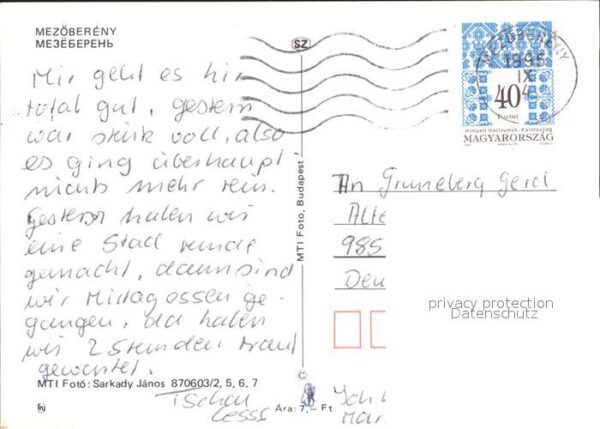 MEZŐBERÉNY
МЕЗЁБЕРЕНЬ
Mir geht es hir
total gut, gestern
war stück voll, also
es ging überhaupt
nichts mehr rein.
Gestern haben wir
eine Stad runde
gemacht, dann sind
wir Mittagessen ge-
gangen, da haben
wir 2 Stunden drauf
gewartet.
Tschau
MTI Fotó: Sarkady János 870603/2, 5, 6, 7
Ára: 7,- Ft
SZ
MTI Foto, Budapest
MEZŐBERÉNY
1995
IX
4
40
Forint
MAGYARORSZÁG
An Gruneberg Gerd
Alte
985
Deu
privacy protection
Datenschutz